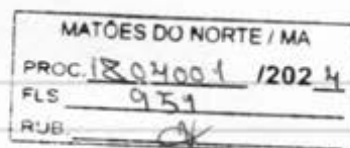 MATÕES DO NORTE / MA
PROC. 1804001 /2024
FLS 951
RUB.